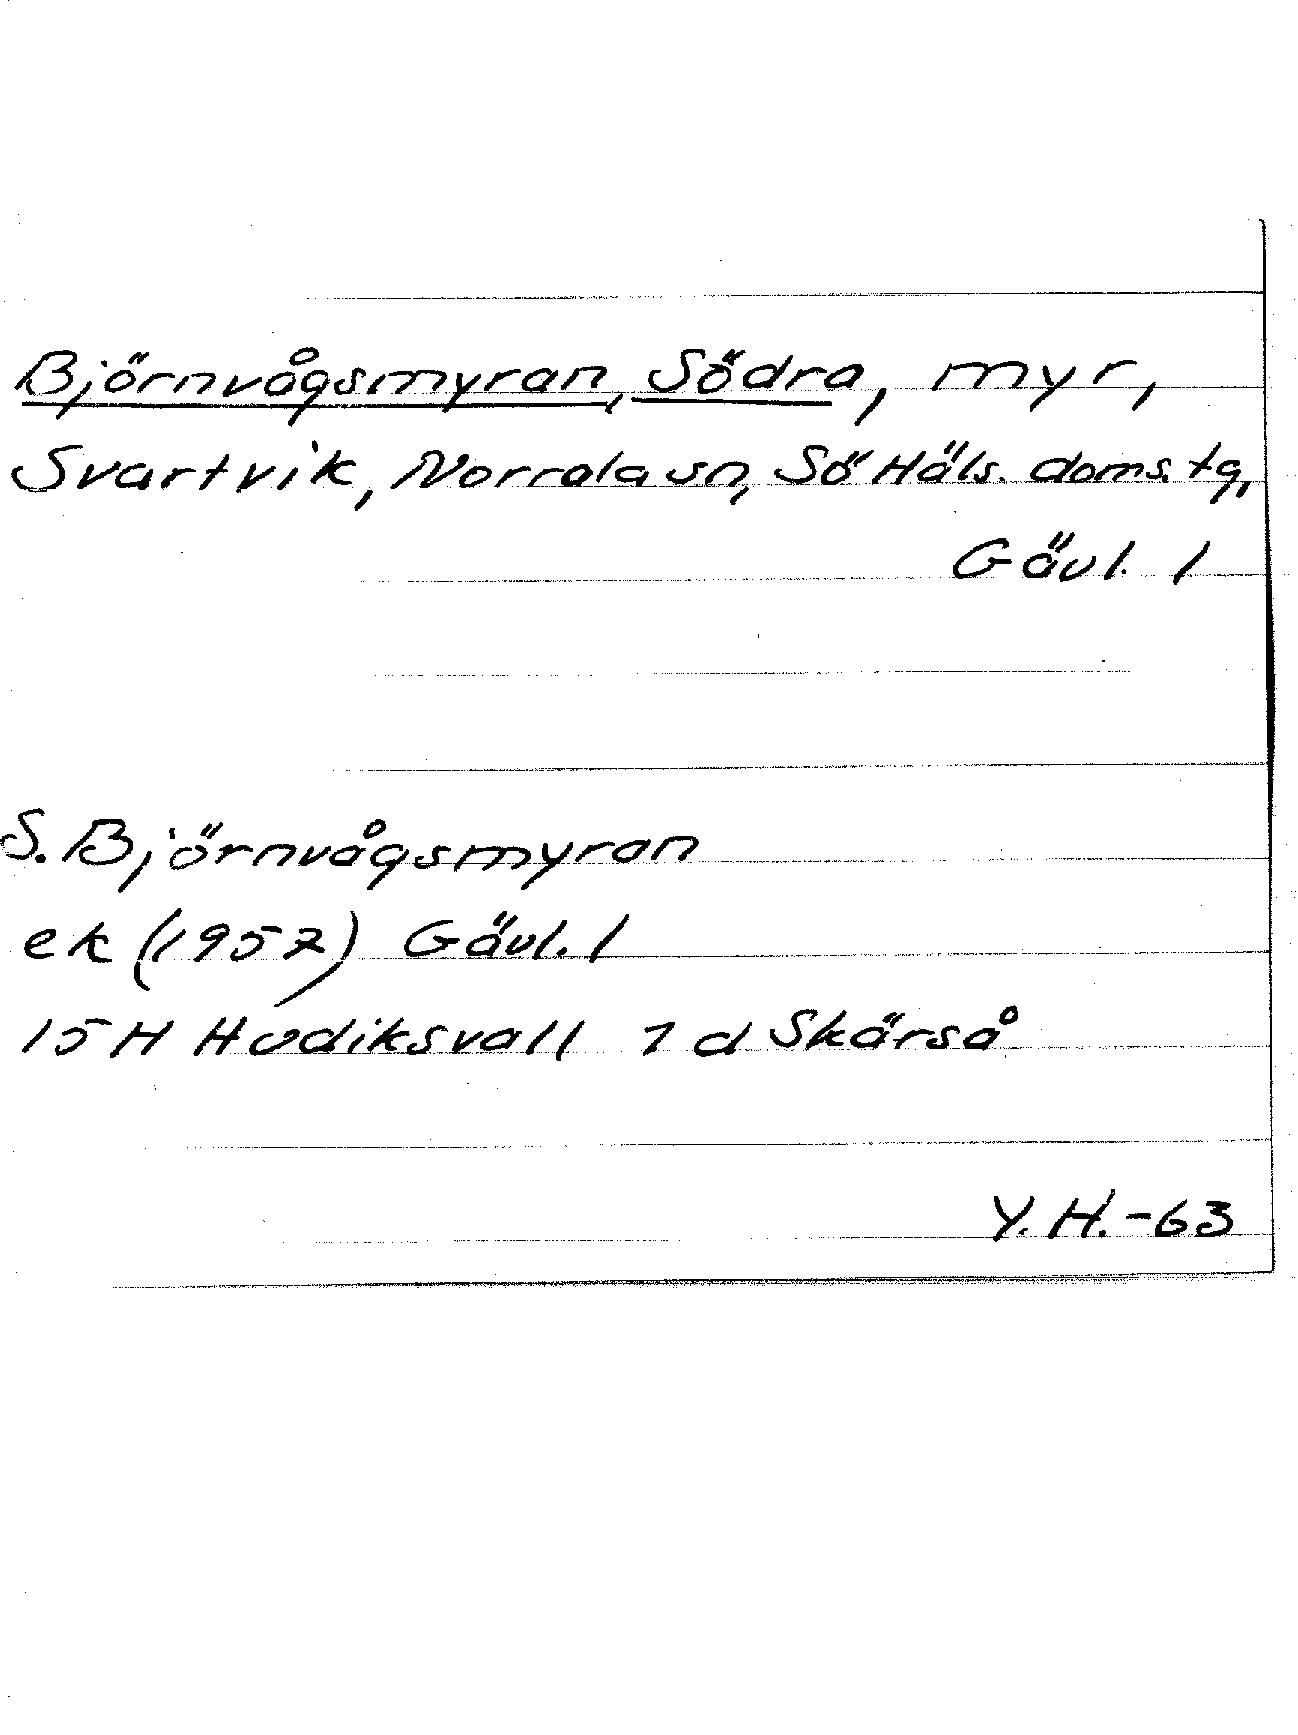 Björnvågsmyran, Södra, myr,
Svartvik, Norrala sn, Sö Häls. doms. tg,
Gävl. l
S. Björnvågsmyran
ek (1957) Gävl. l
15H Hudiksvall 7 d Skärså
Y.H.-63